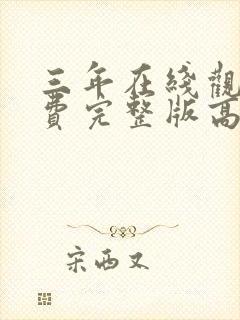 三年在线觀
費完整版高
宋西又